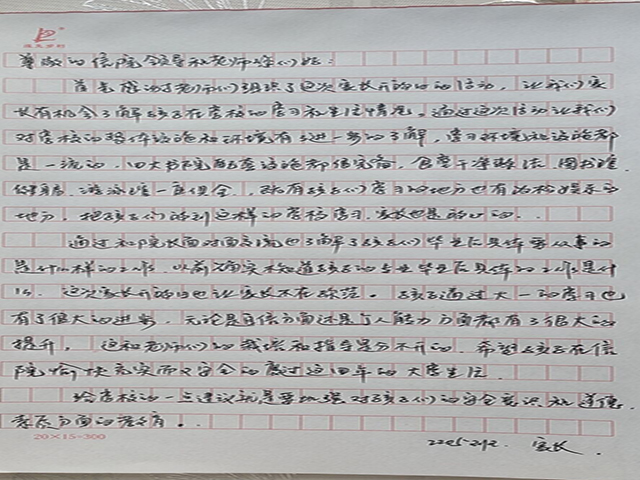 尊敬的信院领导和老师妹们好:
首先感谢老师们组织了这次家长开放日的活动,让我们家
长有机会了解孩子在学校的学习和生活情况。通过这次活动让我们
对学校的整体设施和环境有了进一步的了解,学习环境和设施都
是一流的,四大书院配套设施都很完备,食堂干净整洁,图书馆、
健身房、游泳馆一应俱全,既有孩子们学习的地方也有放松娱乐的
地方,把孩子们放到这样的学校学习,家长也是放心的..
通过和院长面对面交流也了解了孩子们毕业后具体要从事的
是什么样的工作,以前确实不知道孩子的专业毕业后具体的工作是什
么,这次家长开放日也让家长不在迷茫。孩子通过大一的学习也
有了很大的进步,无论是自信方面还是个人能力方面都有了很大的
提升,这和老师们的栽培和指导是分不开的,希望孩子在信
院愉快充实而又安全的度过这四年的大学生活.
给学校的一点建议就是要加强对孩子们的安全意识和道德
素质方面的教育。.
家长.
20×15=300